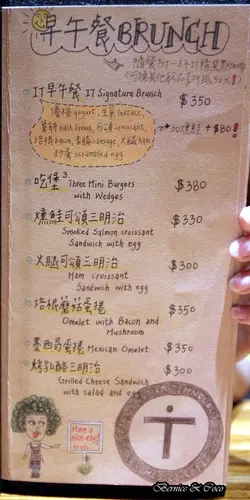 早午餐 BRUNCH
IT早午餐 IT Signature Brunch
$350
優格 yogurt, 生菜 lettuce,
可頌 croissant,
培根 bacon, 香腸 sausage, 火腿 ham
炒蛋 scrambled egg
+$80
吃堡³ Three Mini Burgers
with Wedges
$380
燻鮭可頌三明治
$330
Smoked Salmon croissant
Sandwich with egg
火腿可頌三明治
$300
Ham croissant
Sandwich with egg
培根蘑菇蛋捲
$350
Omelet with Bacon and
Mushroom
墨西哥蛋捲 Mexican Omelet
$350
烤乳酪三明治
$300
Grilled Cheese Sandwich
with salad and egg
Have a
nice day!
Bernice & Coco